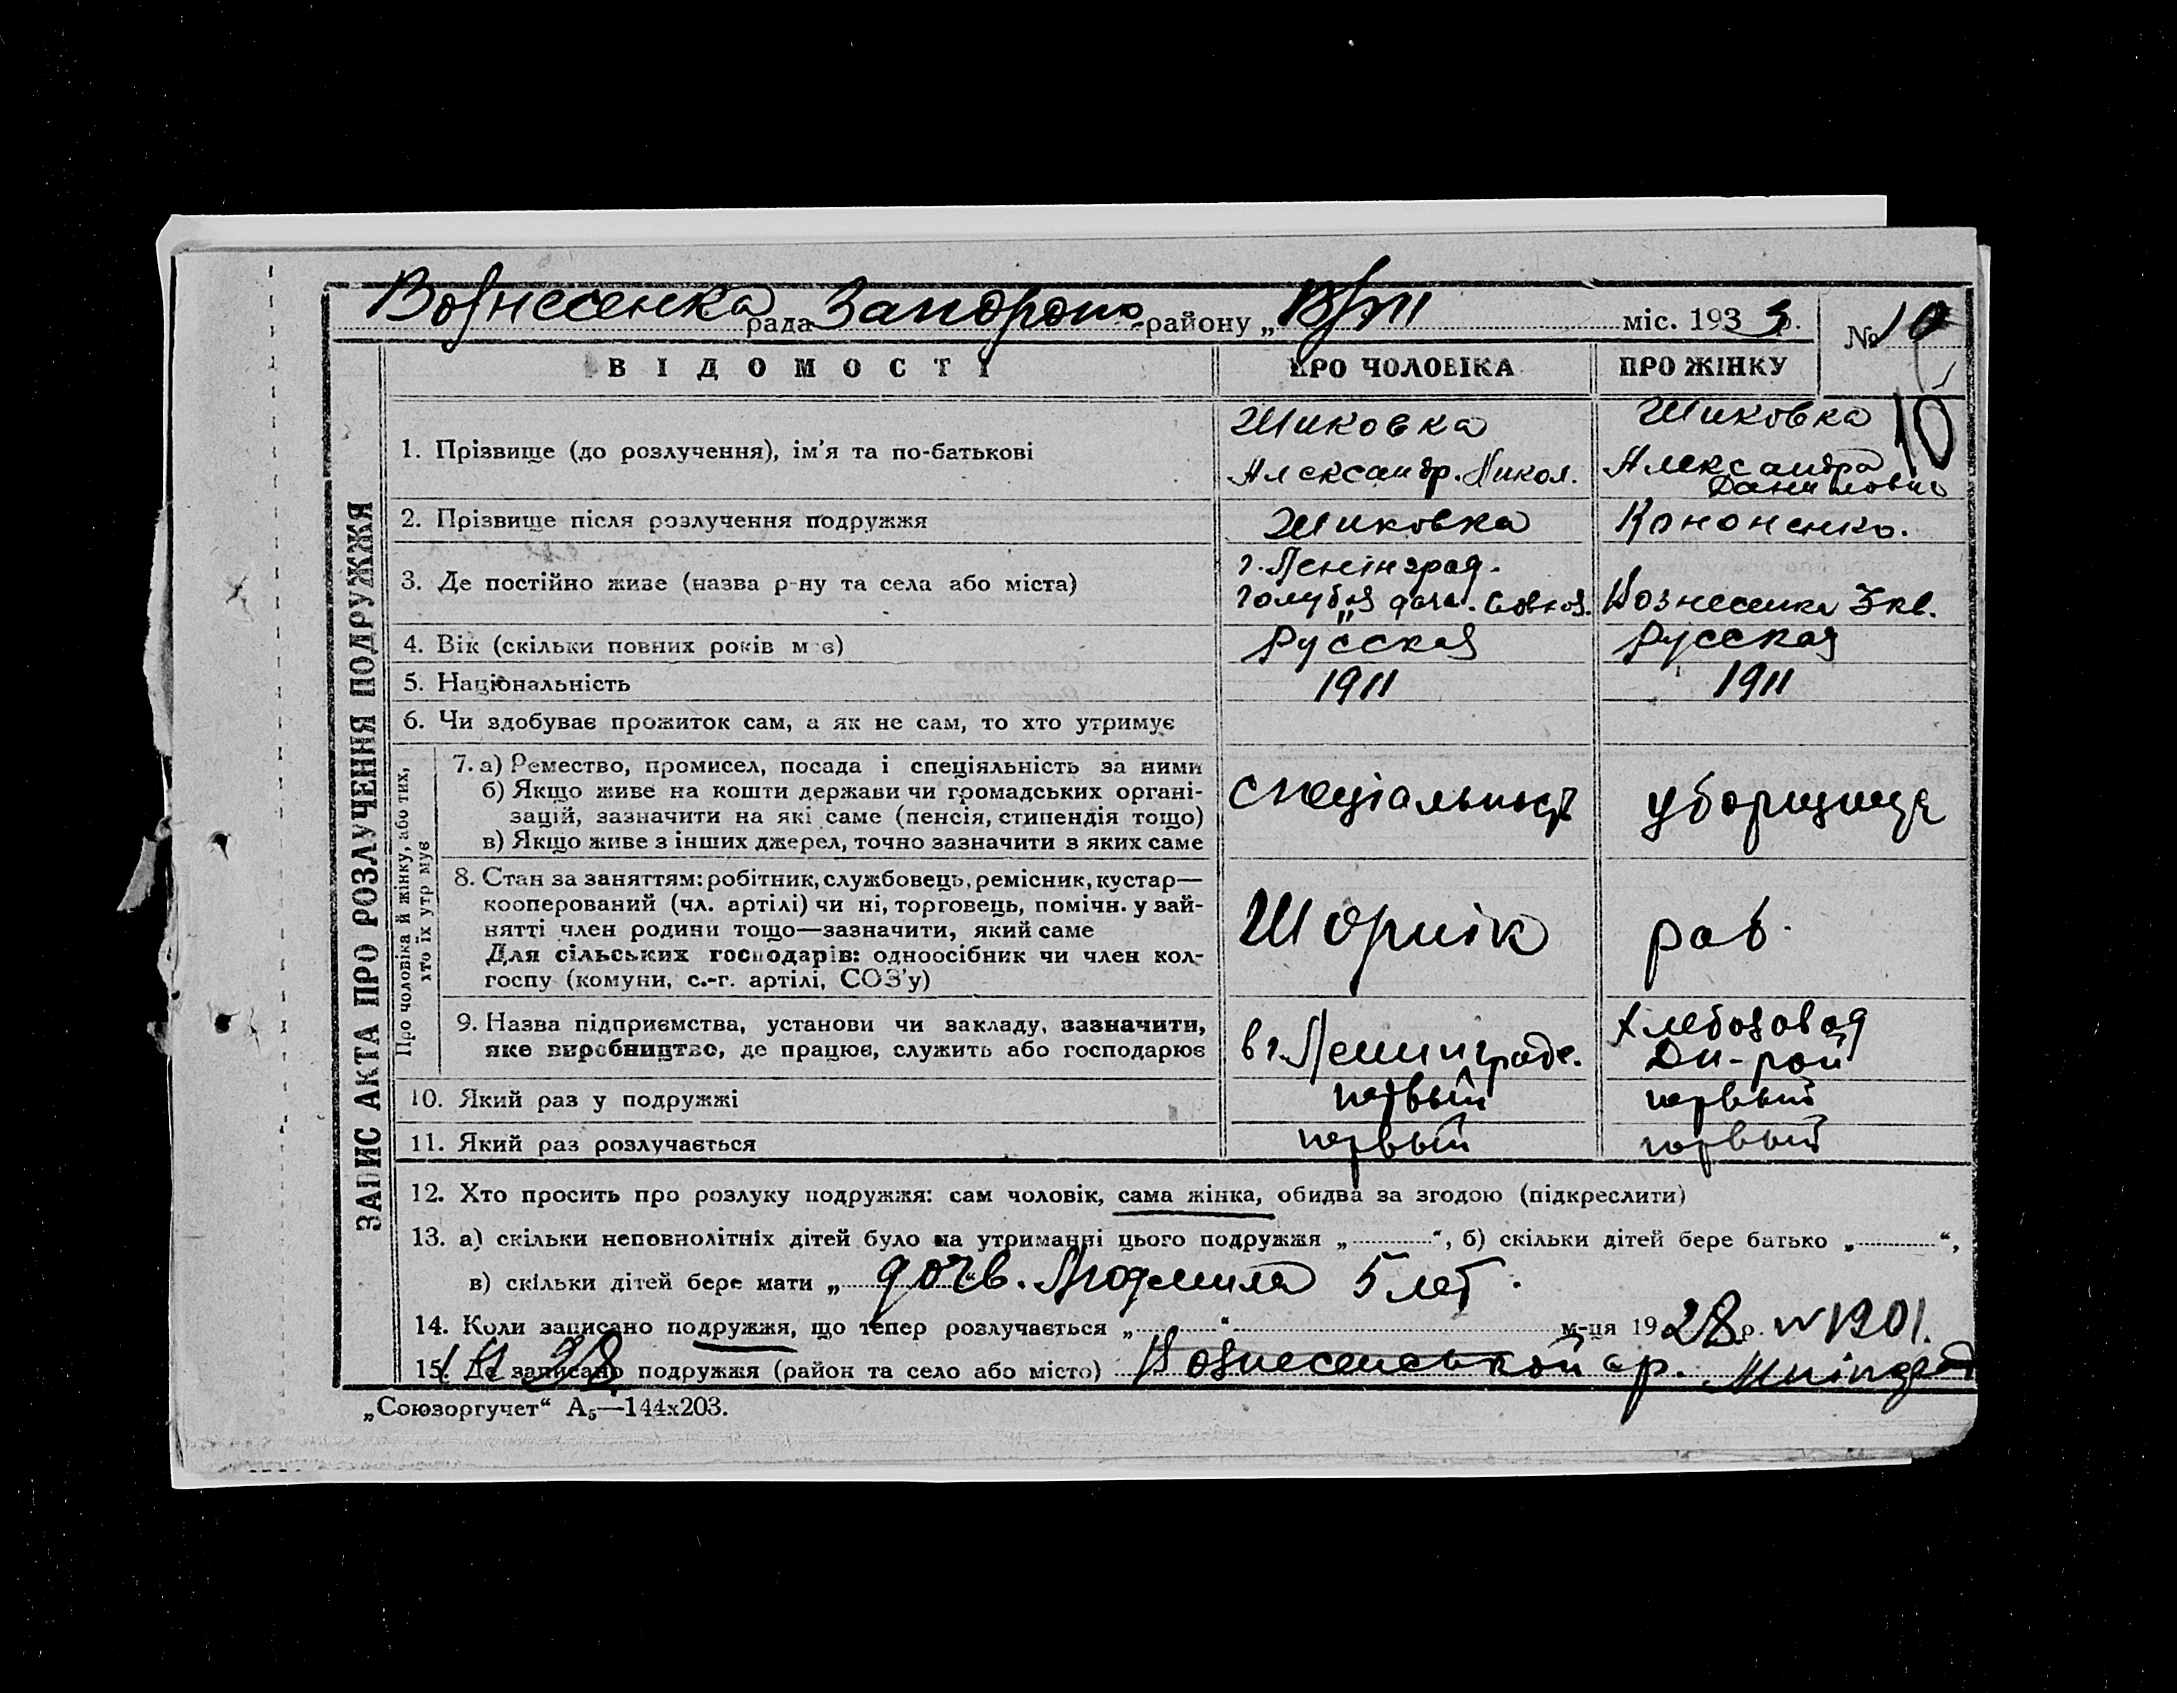 Вознесенка рада Запорож району „ В/III міс. 1933 р. № 10
ВІДОМОСТІ ПРО ЧОЛОВІКА ПРО ЖІНКУ
10
ЗАПИС АКТА ПРО РОЗЛУЧЕННЯ ПОДРУЖЖЯ
1. Прізвище (до розлучення), ім'я та по-батькові
Шиковка
Александр. Никол.
Шиковка
Александра
Даниловно
2. Прізвище після розлучення подружжя Шиковка Кононенко.
3. Де постійно живе (назва р-ну та села або міста)
г. Ленінград.
Голубая дача. Совхоз.
Вознесенка 3 кв.
4. Вік (скільки повних років має) Русская Русская
5. Національність 1911 1911
6. Чи здобуває прожиток сам, а як не сам, то хто утримує
Про чоловіка й жінку, або тих,
хто їх утримує
7. а) Ремество, промисел, посада і спеціяльність за ними
б) Якщо живе на кошти держави чи громадських органі-
зацій, зазначити на які саме (пенсія, стипендія тощо)
в) Якщо живе з інших джерел, точно зазначити з яких саме
специальность
уборщица
8. Стан за заняттям: робітник, службовець, ремісник, кустар—
кооперований (чл. артілі) чи ні, торговець, помічн. у зай-
нятті член родини тощо—зазначити, який саме
Для сільських господарів: одноосібник чи член кол-
госпу (комуни, с.-г. артілі, СОЗ'у)
Шорнік
раб.
9. Назва підприємства, установи чи закладу, зазначити,
яке виробництво, де працює, служить або господарює
в г. Ленинграде.
Хлебозавод
Дн-рой
10. Який раз у подружжі первый первый
11. Який раз розлучається первый первый
12. Хто просить про розлуку подружжя: сам чоловік, сама жінка, обидва за згодою (підкреслити)
13. а) скільки неповнолітніх дітей було на утриманні цього подружжя „ “, б) скільки дітей бере батько „ “,
в) скільки дітей бере мати „ дочь. Людмила 5 лет.
14. Коли записано подружжя, що тепер розлучається „ “ м-ця 1928 р. N 1201.
15. Де записано подружжя (район та село або місто) Вознесенськой ср.
„Союзоргучет“ А₅—144х203.